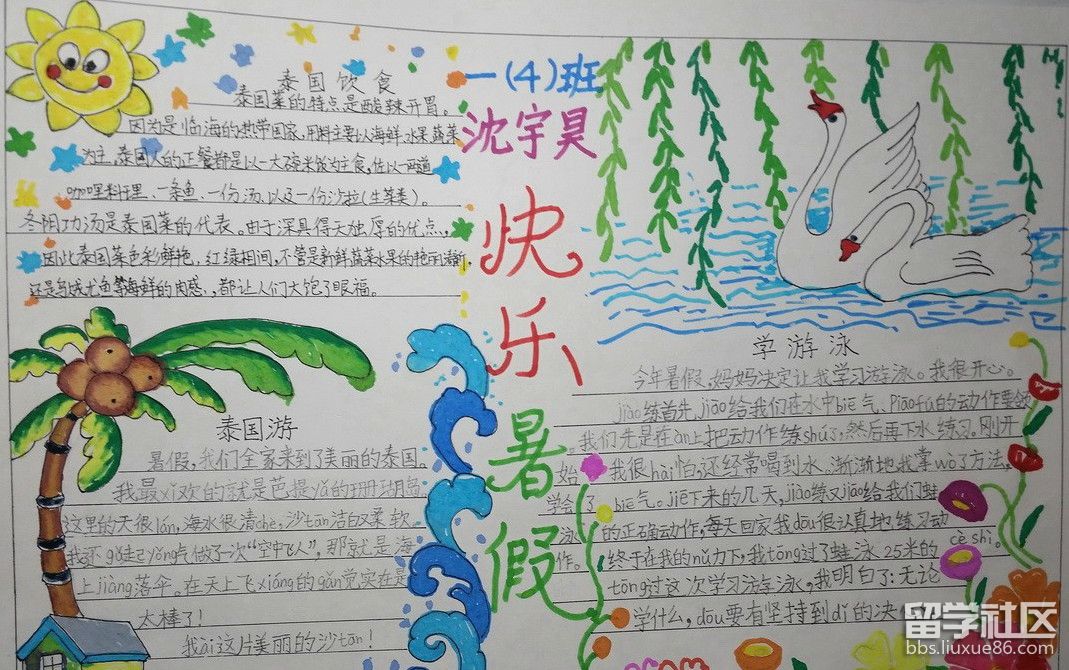 泰国饮食
泰国菜的特点是酸辣开胃。
因为是临海的热带国家,用料主要以海鲜、水果、蔬菜
为主。泰国人的正餐都是以一大碗米饭为主食,佐以一两道
咖哩料理、一条鱼、一份汤、以及一份沙拉(生菜类)。
冬阴功汤是泰国菜的代表。由于深具得天独厚的优点,
因此泰国菜色彩鲜艳,红绿相间,不管是新鲜蔬菜水果的艳丽
还是鱼尤鱼等海鲜的肉感,都让人们大饱了眼福。
一(4)班
沈宇昊
快乐暑假
泰国游
暑假,我们全家来到了美丽的泰国。
我最xǐ欢的就是芭提yǎ的珊瑚岛
这里的天很lán,海水很清chè,沙tān洁白又柔软
我还gǔ起yǒng气做了一次“空中飞人”,那就是海
上jiàng落伞。在天上飞xiáng的gǎn觉实在是
太棒了!
我ài这片美丽的沙tān!
学游泳
今年暑假,妈妈决定让我学习游泳。我很开心。
jiào练首先jiāo给我们在水中biē气、piāofú的动作要领
我们先是在àn上把动作练shú了,然后再下水练习。刚开
始,我很hài怕,还经常喝到水。渐渐地我掌wò了方法,
学会了biē气。jiē下来的几天,jiào练又jiāo给我们蛙
泳的正确动作,每天回家我dōu很认真地练习动
作。终于在我的nǔ力下,我tōng过了蛙泳25米的
cè shì。
tōng过这次学习游泳,我明白了:无论
学什么,dōu要有坚持到dǐ的决
留学社区
bbs.liuxue86.com